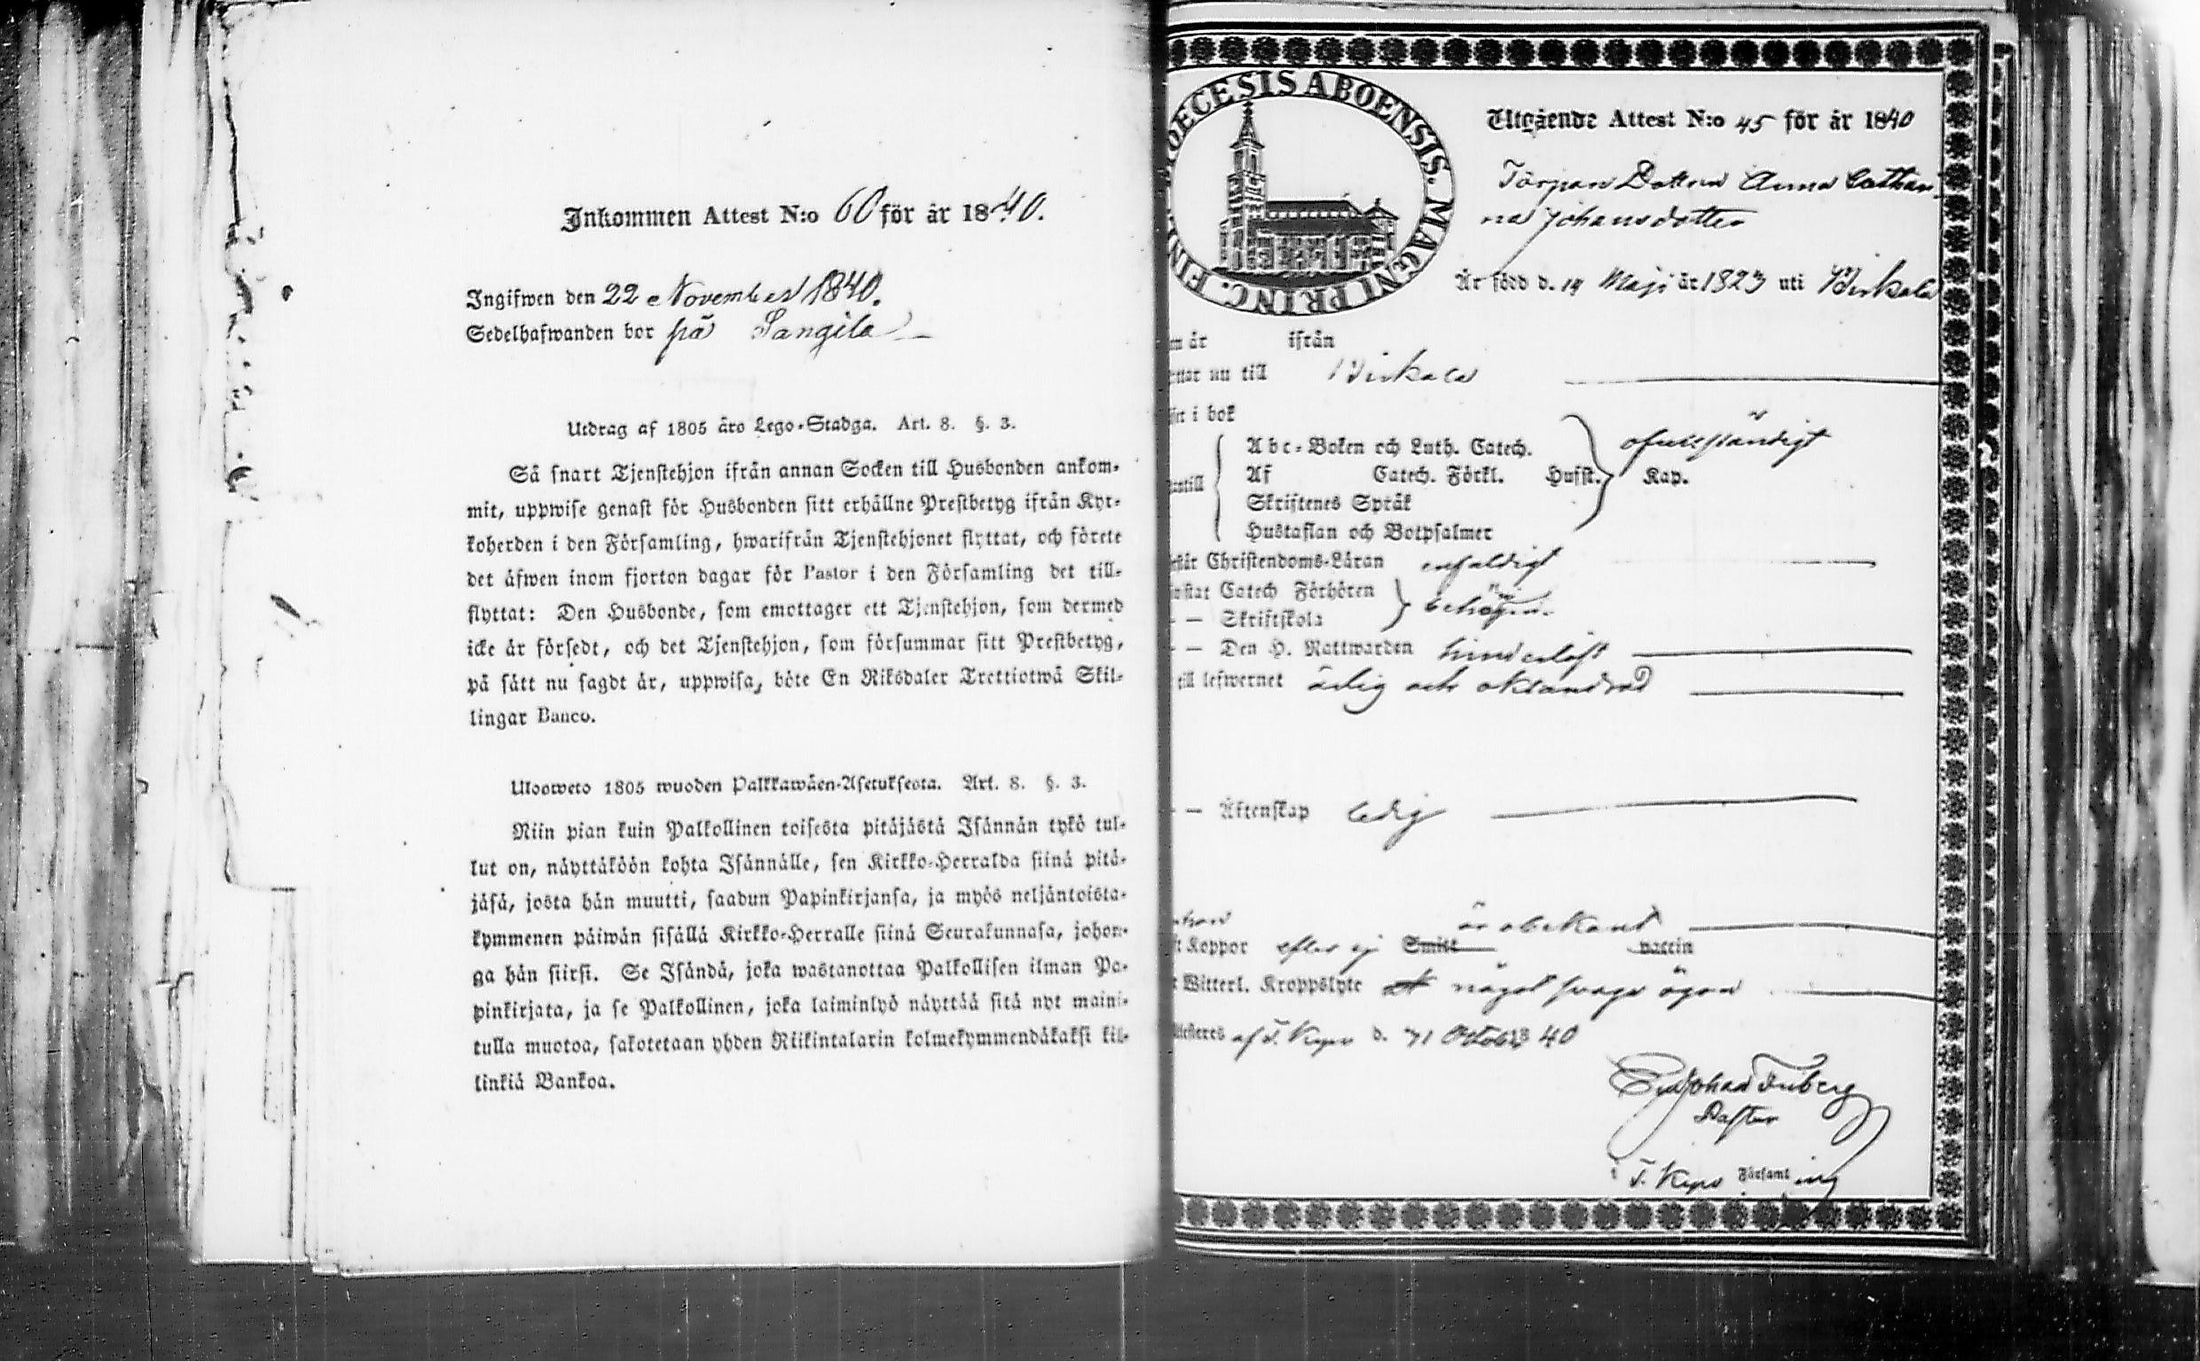 Inkommen Attest N:o 60 för år 1840.
Ingifwen den 22 November 1840.
Sedelhafwanden bor på Sangila
Utdrag af 1805 års Lego-Stadga. Art. 8. §. 3.
Så snart Tjenstehjon ifrån annan Socken till Husbonden ankom-
mit, uppwise genast för Husbonden sitt erhållne Prestbetyg ifrån Kyr-
koherden i den Församling, hwarifrån Tjenstehjonet flyttat, och förete
det äfwen inom fjorton dagar för Pastor i den Församling det till-
flyttat: Den Husbonde, som emottager ett Tjenstehjon, som dermed
icke är försedt, och det Tjenstehjon, som försummar sitt Prestbetyg,
på sätt nu sagdt är, uppwisa, böte En Riksdaler Trettiotwå Skil-
lingar Banco.
Ulosweto 1805 wuoden Palkkawäen-Asetuksesta. Art. 8. §. 3.
Niin pian kuin Palkollinen toisesta pitäjästä Isännän tykö tul-
lut on, näyttäköön kohta Isännälle, sen Kirkko-Herralda siinä pitä-
jäsä, josta hän muutti, saadun Papinkirjansa, ja myös neljäntoista-
kymmenen päiwän sisällä Kirkko-Herralle siinä Seurakunnasa, johon-
ga hän siirsi. Se Isändä, joka wastanottaa Palkollisen ilman Pa-
pinkirjata, ja se Palkollinen, joka laiminlyö näyttää sitä nyt maini-
tulla muotoa, sakotetaan yhden Riikintalarin kolmekymmendäkaksi kil-
linkiä Bankoa.
DIOECESIS ABOENSIS. MAGNI PRINC. FINL.
Utgående Attest N:o 45 för år 1840
Torpare Dottren Anna Cathari
na Johansdotter
Är född d. 14 Maji år 1823 uti Birkala
m år ifrån
ttar nu till Birkala
i bok
Abc-Boken och Luth. Catech. ofullständigt
antill Af Catech. Förkl. Husst. Kap.
Skriftenes Språk
Hustaflan och Botpsalmer
står Christendoms-Läran enfaldigt
wistat Catech Förhören behörigen
— Skriftskola
— Den H. Nattwarden hinderlöst
till lefwernet ärlig och oklandrad
— Äktenskap ledig
är obekant
t Koppor eller ej Smitt vaccin
Witterl. Kroppslyte något svaga ögon
Attesteres af T. Kyro d. 31 October 40
Johan Tuberg
Pastor
i T. Kyro Församling